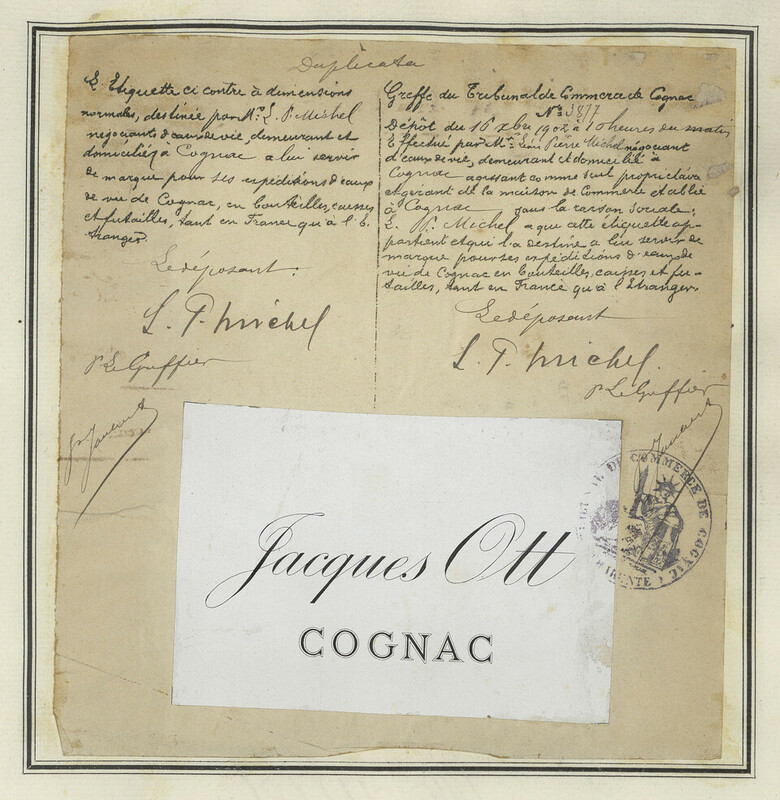 Duplicata
L'Etiquette ci contre à dimensions
normales, destinée par Mr. L. P. Michel
négociant d'eaux de vie, demeurant et
domicilié à Cognac a lui servir
de marque pour ses expéditions d'eaux
de vie de Cognac, en bouteilles, caisses
et futailles, tant en France qu'à l'E-
tranger.
Le déposant:
L. P. Michel
Pr Le Greffier
Greffe du Tribunal de Commerce de Cognac
No 3877
Dépôt du 16 xbre 1902 à 10 heures du matin
Effectué par Mr. Léon Pierre Michel négociant
d'eaux de vie, demeurant et domicilié à
Cognac agissant comme seul propriétaire
et gérant de la maison de Commerce établie
à Cognac sous la raison sociale:
L. P. Michel, a que cette étiquette ap-
partient et qui l'a destine a lui servir de
marque pour ses expéditions d'eaux de
vie de Cognac en bouteilles, caisses et fu-
tailles, tant en France qu'à l'Etranger.
Le déposant
L. P. Michel.
Pr Le Greffier
Jacques Ott
COGNAC
DE COMMERCE DE COGNAC